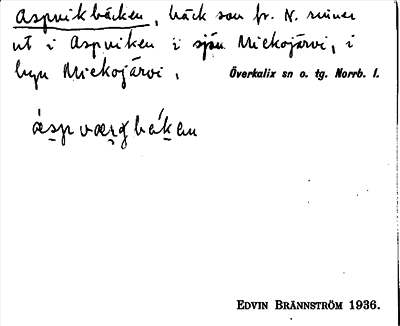 Aspvikbäcken, bäck som fr. N. rinner
ut i Aspviken i sjön Miekojärvi, i
byn Miekojärvi.
Överkalix sn o. tg. Norrb. l.
EDVIN BRÄNNSTRÖM 1936.